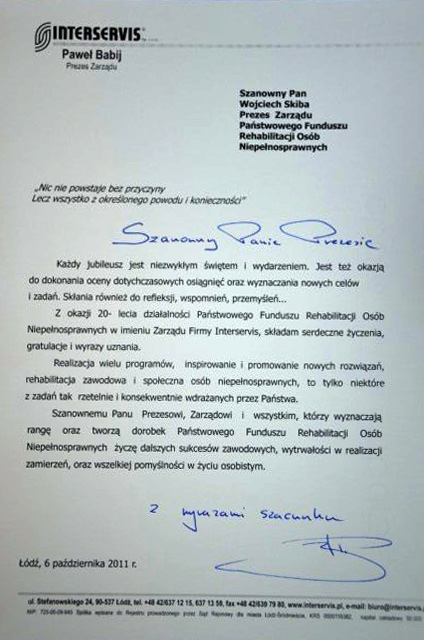 INTERSERVIS
Paweł Babij
Prezes Zarządu
Szanowny Pan
Wojciech Skiba
Prezes Zarządu
Państwowego Funduszu
Rehabilitacji Osób
Niepełnosprawnych
„Nic nie powstaje bez przyczyny
Lecz wszystko z określonego powodu i konieczności”
Szanowny Panie Prezesie
Każdy jubileusz jest niezwykłym świętem i wydarzeniem. Jest też okazją
do dokonania oceny dotychczasowych osiągnięć oraz wyznaczania nowych celów
i zadań. Skłania również do refleksji, wspomnień, przemyśleń...
Z okazji 20- lecia działalności Państwowego Funduszu Rehabilitacji Osób
Niepełnosprawnych w imieniu Zarządu Firmy Interservis, składam serdeczne życzenia,
gratulacje i wyrazy uznania.
Realizacja wielu programów, inspirowanie i promowanie nowych rozwiązań,
rehabilitacja zawodowa i społeczna osób niepełnosprawnych, to tylko niektóre
z zadań tak rzetelnie i konsekwentnie wdrażanych przez Państwa.
Szanownemu Panu Prezesowi, Zarządowi i wszystkim, którzy wyznaczają
rangę oraz tworzą dorobek Państwowego Funduszu Rehabilitacji Osób
Niepełnosprawnych życzę dalszych sukcesów zawodowych, wytrwałości w realizacji
zamierzeń, oraz wszelkiej pomyślności w życiu osobistym.
z wyrazami szacunku
Łódź, 6 października 2011 r.
ul. Stefanowskiego 24, 90-537 Łódź, tel. +48 42/637 12 15, 637 13 59, fax +48 42/639 79 80, www.interservis.pl, e-mail: biuro@interservis.pl
Spółka wpisana do Rejestru prowadzonego przez Sąd Rejonowy dla miasta Łódź-Śródmieście, KRS kapitał zakładowy